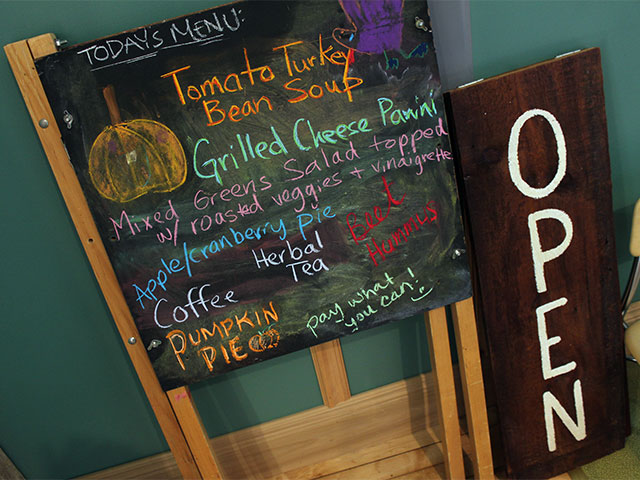 TODAYS MENU:
Tomato Turkey
Bean Soup
Grilled Cheese Panini
Mixed Greens Salad topped
w/ roasted veggies + vinaigrette
Apple/cranberry Pie
Herbal
Tea
Hummus
Coffee
PUMPKIN
PIE
pay what
you can!
OPEN